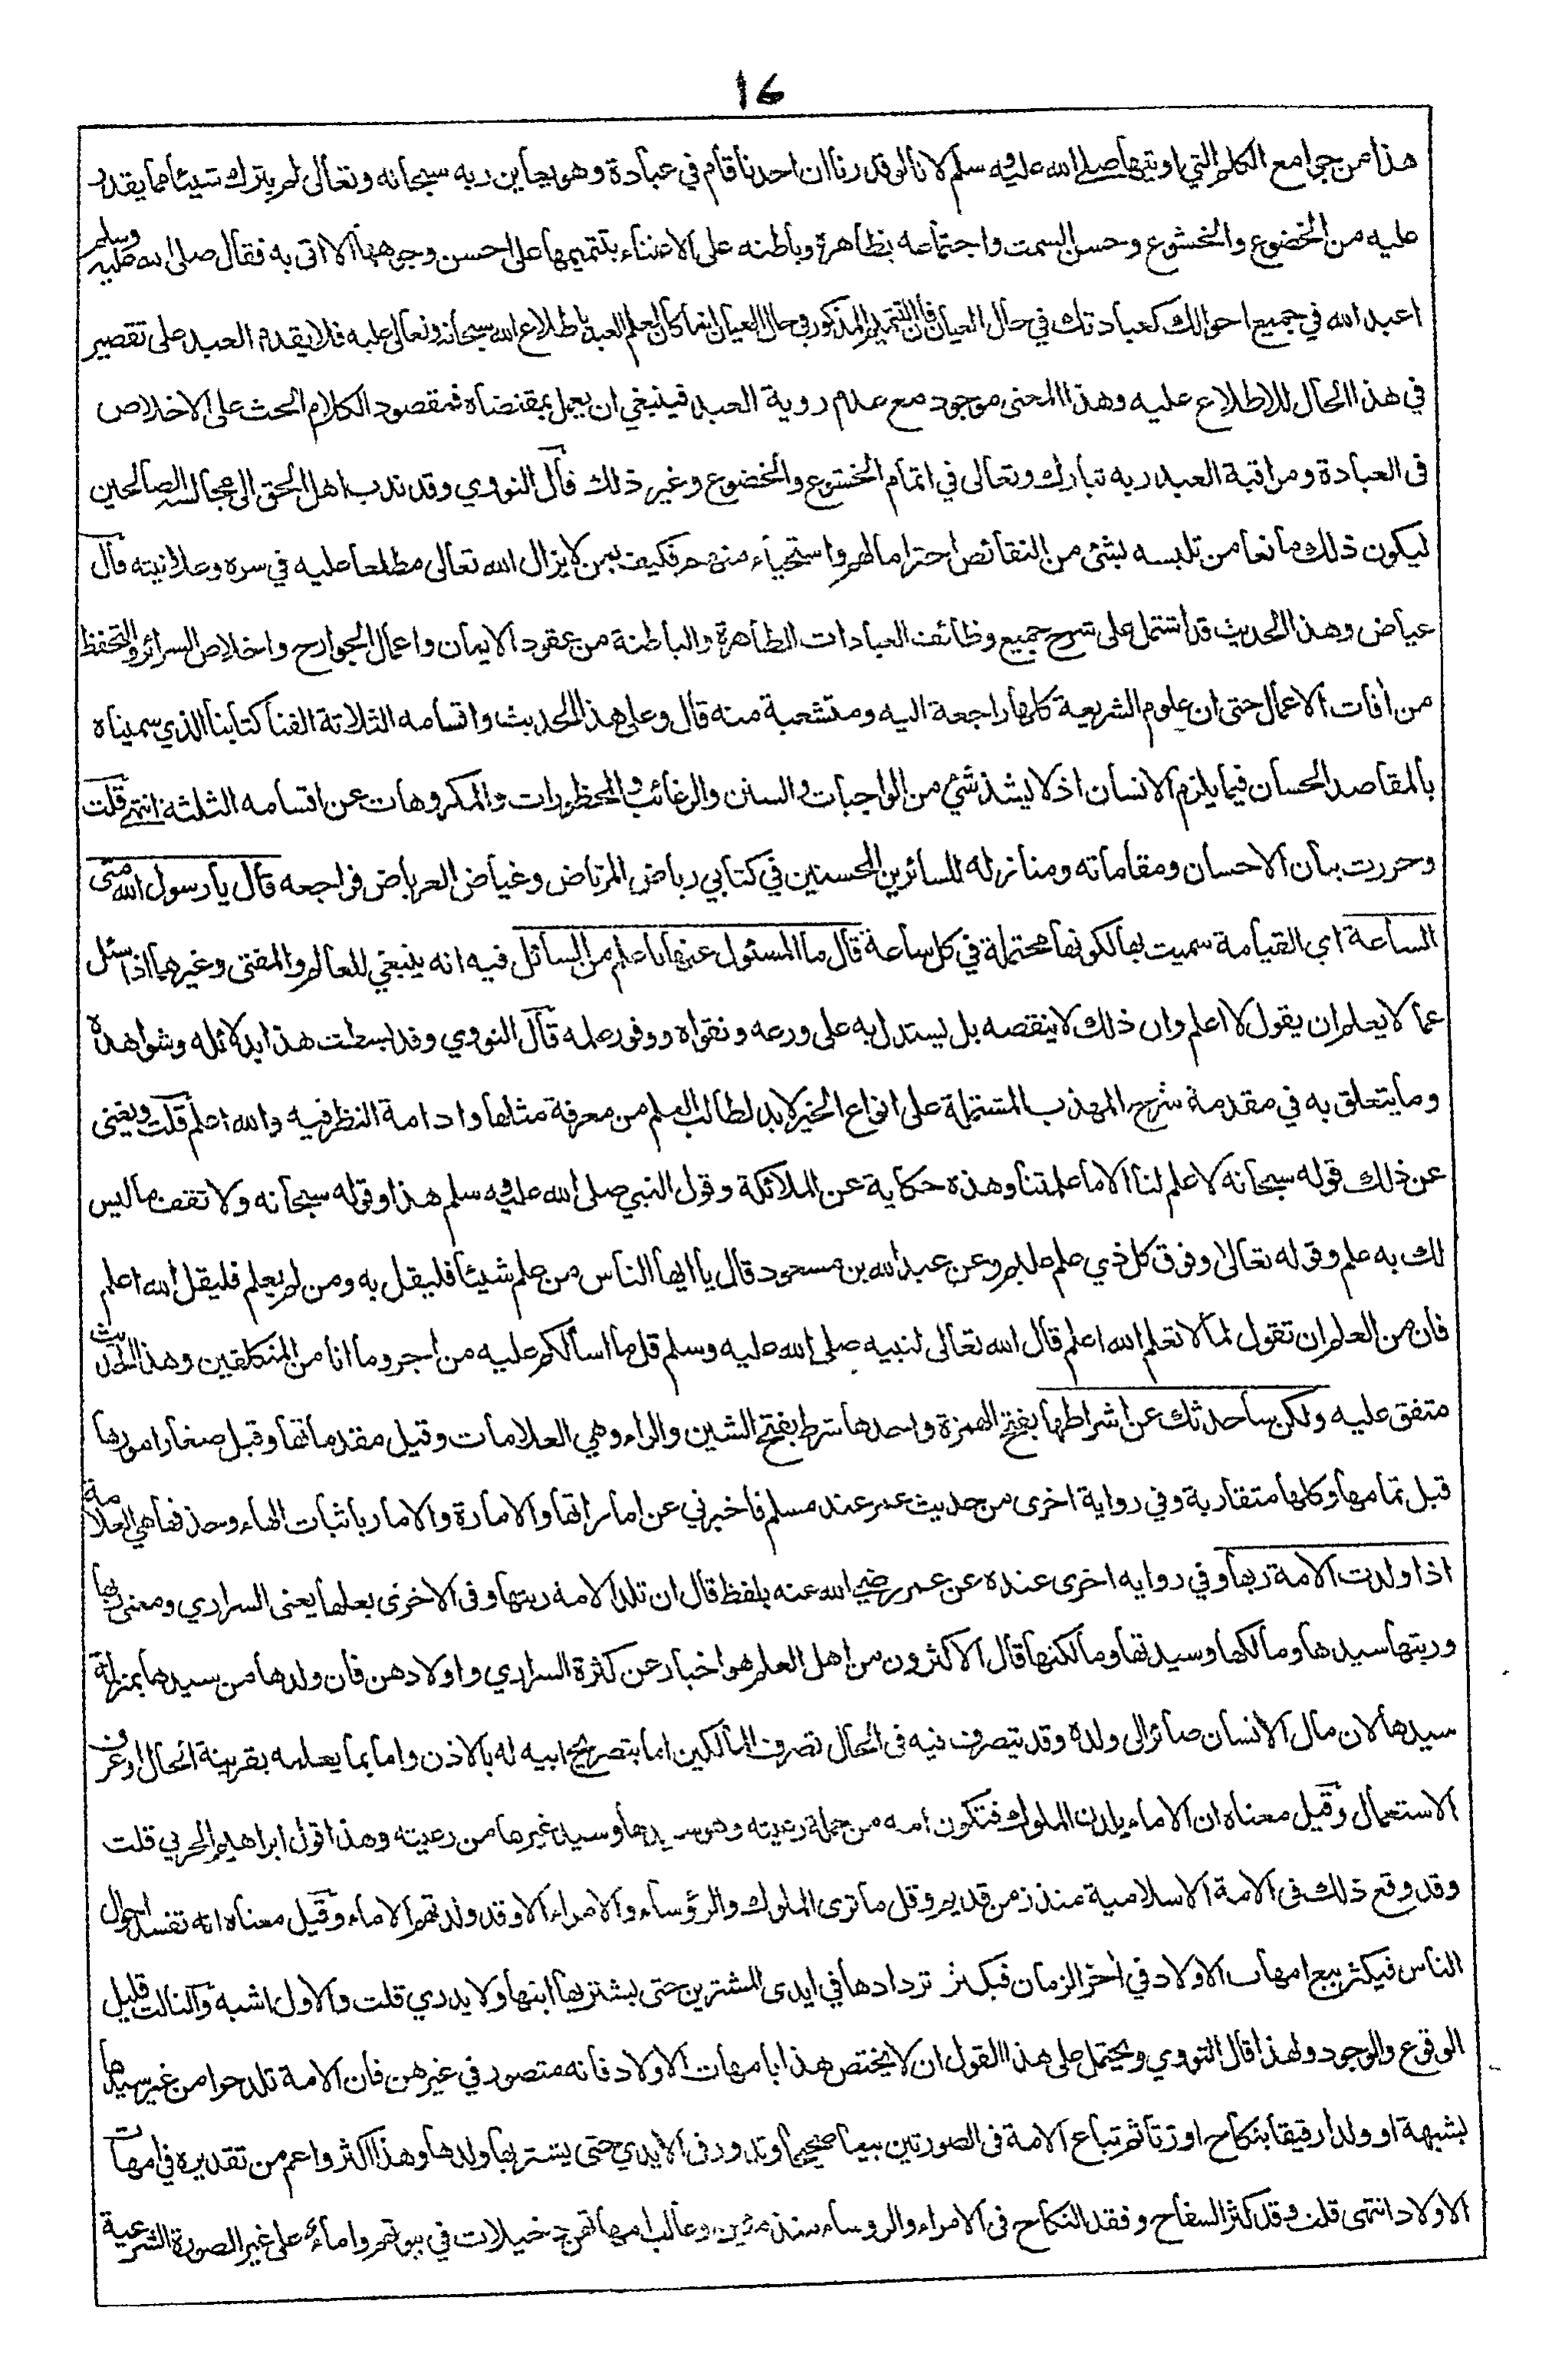 16
هذا من جوامع الكلم التي اوتيها صلى الله عليه وسلم لانا لو قدرنا ان احدنا قام في عبادة وهو يعاين ربه سبحانه وتعالى لم يترك شيئا مما يقدر
عليه من الخضوع والخشوع وحسن السمت واجتماعه بظاهره وباطنه على الاعتناء بتتميمها على احسن وجوهها الا اتى به فقال صلى الله عليه وسلم
اعبد الله في جميع احوالك كعبادتك في حال العيان فان التتميم المذكور في حال العيان انما كان لعلم العبد باطلاع الله سبحانه وتعالى عليه فلا يقدم العبد على تقصير
في هذا الحال للاطلاع عليه وهذا المعنى موجود مع عدم روية العبد فينبغي ان يعمل بمقتضاه فمقصود الكلام الحث على الاخلاص
فى العبادة ومراقبة العبد ربه تبارك وتعالى في اتمام الخشوع والخضوع وغير ذلك قال النووي وقد ندب اهل الحق الى مجالسة الصالحين
ليكون ذلك مانعا من تلبسه بشئ من النقائص احتراما لهم واستحياء منهم فكيف بمن لا يزال الله تعالى مطلعا عليه في سره وعلانيته قال
عياض وهذا الحديث قد اشتمل على شرح جميع وظائف العبادات الظاهرة والباطنة من عقود الايمان واعمال الجوارح واخلاص السرائر والتحفظ
من أفات الاعمال حتى ان علوم الشريعة كلها راجعة اليه ومتشعبة منه قال وعلى هذا الحديث واقسامه الثلاثة الفنا كتابنا الذي سميناه
بالمقاصد الحسان فيما يلزم الانسان اذ لا يشذ شئ من الواجبات والسنن والرغائب والمحظورات والمكروهات عن اقسامه الثلثة انتهى قلت
وحررت بيان الاحسان ومقاماته ومنازله للسائرين المحسنين في كتابي رياض المرتاض وغياض العرباض فراجعه قال يا رسول الله متى
الساعة اي القيامة سميت بها لكونها محتملة في كل ساعة قال ما المسئول عنها باعلم من السائل فيه انه ينبغي للعالم والمفتى وغيرهما اذا سئل
عما لا يعلم ان يقول لا اعلم وان ذلك لا ينقصه بل يستدل به على ورعه وتقواه ووفور علمه قال النووي وقد بسطت هذا بدلائله وشواهده
وما يتعلق به في مقدمة شرح المهذب المشتملة على انواع الخير لا بد لطالب العلم من معرفة مثلها وادامة النظر فيه والله اعلم قلت ويغنى
عن ذلك قوله سبحانه لا علم لنا الا ما علمتنا وهذه حكاية عن الملائكة وقول النبي صلى الله عليه وسلم هذا وقوله سبحانه ولا تقف ما ليس
لك به علم وقوله تعالى وفوق كل ذي علم عليم وعن عبد الله بن مسعود قال يا ايها الناس من علم شيئا فليقل به ومن لم يعلم فليقل الله اعلم
فان من العلم ان تقول لما لا تعلم الله اعلم قال الله تعالى لنبيه صلى الله عليه وسلم قل ما اسألكم عليه من اجر وما انا من المتكلفين وهذا الحديث
متفق عليه ولكن ساحدثك عن اشراطها بفتح الهمزة واحدها شرط بفتح الشين والراء وهي العلامات وقيل مقدماتها وقيل صغار امورها
قبل تمامها وكلها متقاربة وفي رواية اخرى من حديث عمر عند مسلم فاخبرني عن اماراتها والامارة والامار باثبات الهاء وحذفها هي العلامة
اذا ولدت الامة ربها وفي رواية اخرى عنده عن عمر رضي الله عنه بلفظ قال ان تلد الامة ربتها وفى الاخرى بعلها يعنى السراري ومعنى ربها
وربتها سيدها ومالكها وسيدتها ومالكتها قال الاكثرون من اهل العلم هو اخبار عن كثرة السراري واولادهن فان ولدها من سيدها بمنزلة
سيدها لان مال الانسان صائر الى ولده وقد يتصرف فيه فى الحال تصرف المالكين اما بتصريح ابيه له بالاذن واما بما يعلمه بقرينة الحال او عرف
الاستعمال وقيل معناه ان الاماء يلدن الملوك فتكون امه من جملة رعيته وهو سيدها وسيد غيرها من رعيته وهذا قول ابراهيم الحربي قلت
وقد وقع ذلك فى الامة الاسلامية منذ زمن قديم وقل ما ترى الملوك والرؤساء والامراء الا وقد ولدتهم الاماء وقيل معناه انه تفسد احوال
الناس فيكثر بيع امهات الاولاد في اخر الزمان فيكثر تردادها في ايدى المشترين حتى يشتريها ابنها ولا يدري قلت والاول اشبه والثالث قليل
الوقوع والوجود ولهذا قال النووي ويحتمل على هذا القول ان لا يختص هذا بامهات الاولاد فانه متصور في غيرهن فان الامة تلد حرا من غير سيدها
بشبهة او ولدا رقيقا بنكاح او زنا ثم تباع الامة فى الصورتين بيعا صحيحا وتدور فى الايدي حتى يشتريها ولدها وهذا اكثر واعم من تقديره في امهات
الاولاد انتهى قلت وقد كثر السفاح وفقد النكاح فى الامراء والروساء منذ مئين وغالب امهاتهم دخيلات في بيوتهم واماء على غير الصورة الشرعية